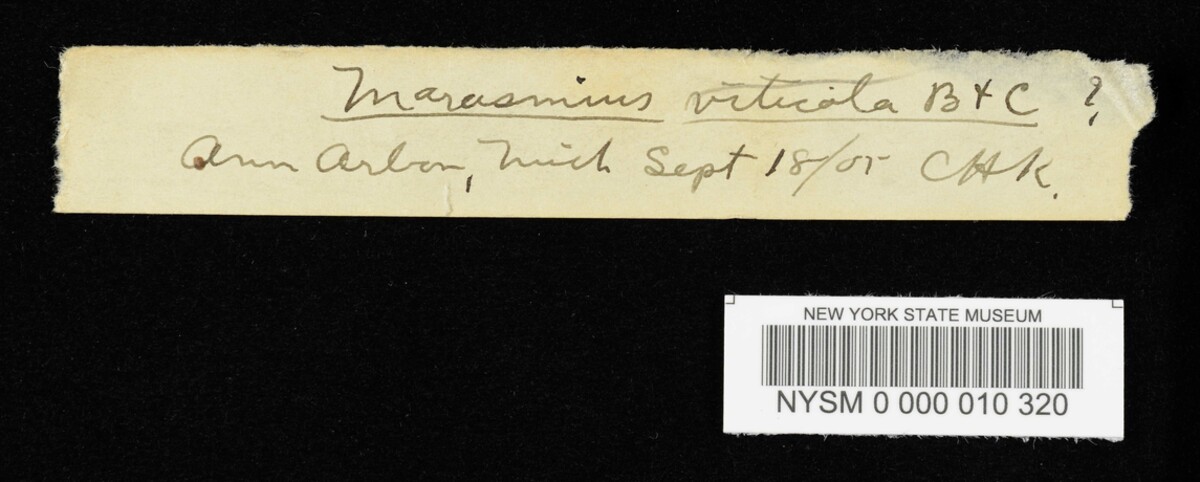 Marasmius viticola B & C ?
Ann Arbor, Mich Sept 18/05 CHK.
NEW YORK STATE MUSEUM
NYSM 0 000 010 320